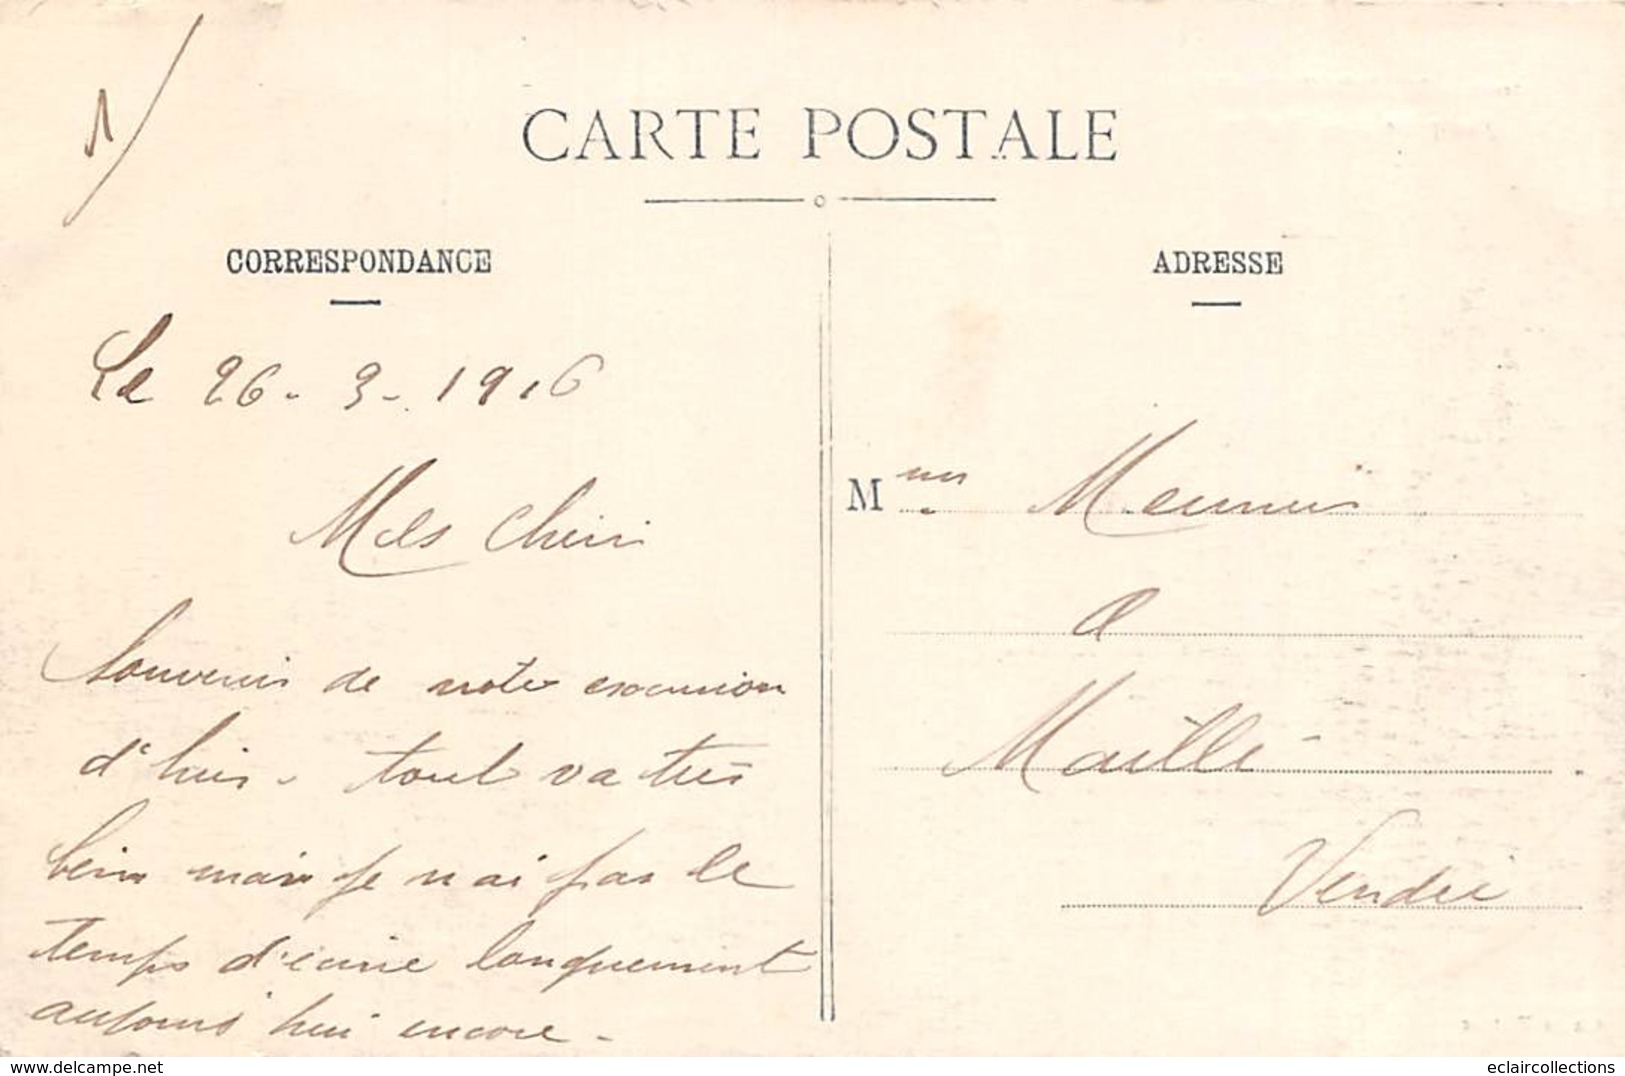 1
CARTE POSTALE
CORRESPONDANCE
ADRESSE
Le 26-3-1916
Mes Chéri
Souvenir de notre excursion
d'hier. tout va très
bien mais je n'ai pas le
temps d'écrire longuement
aujourd'hui encore.
M
Meunier
a
Maillé
Vendée
www.delcampe.net
eclaircollections